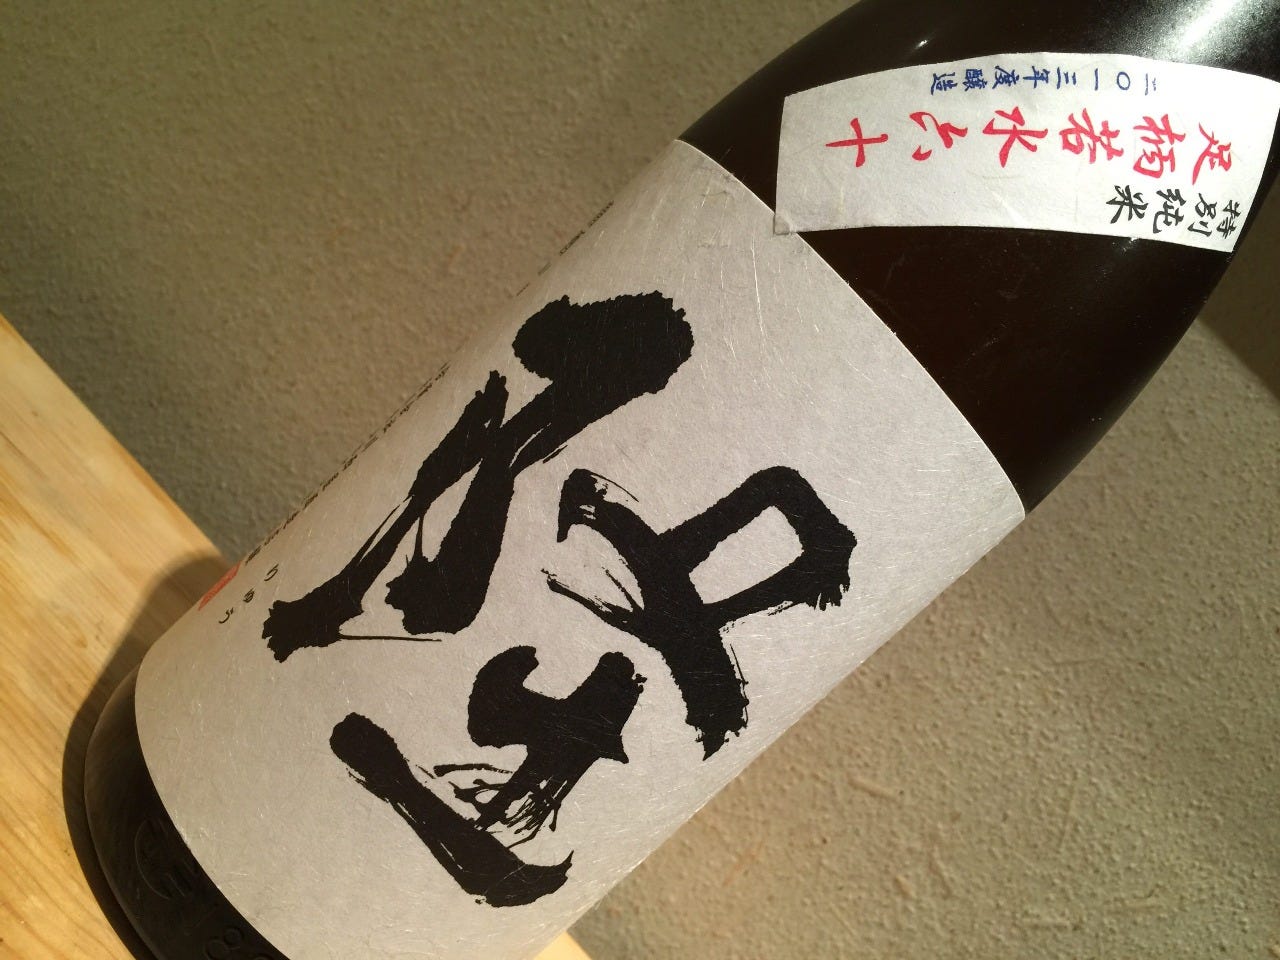 特別純米
足柄若水六十
二〇一三年度醸造
隆
りゅう